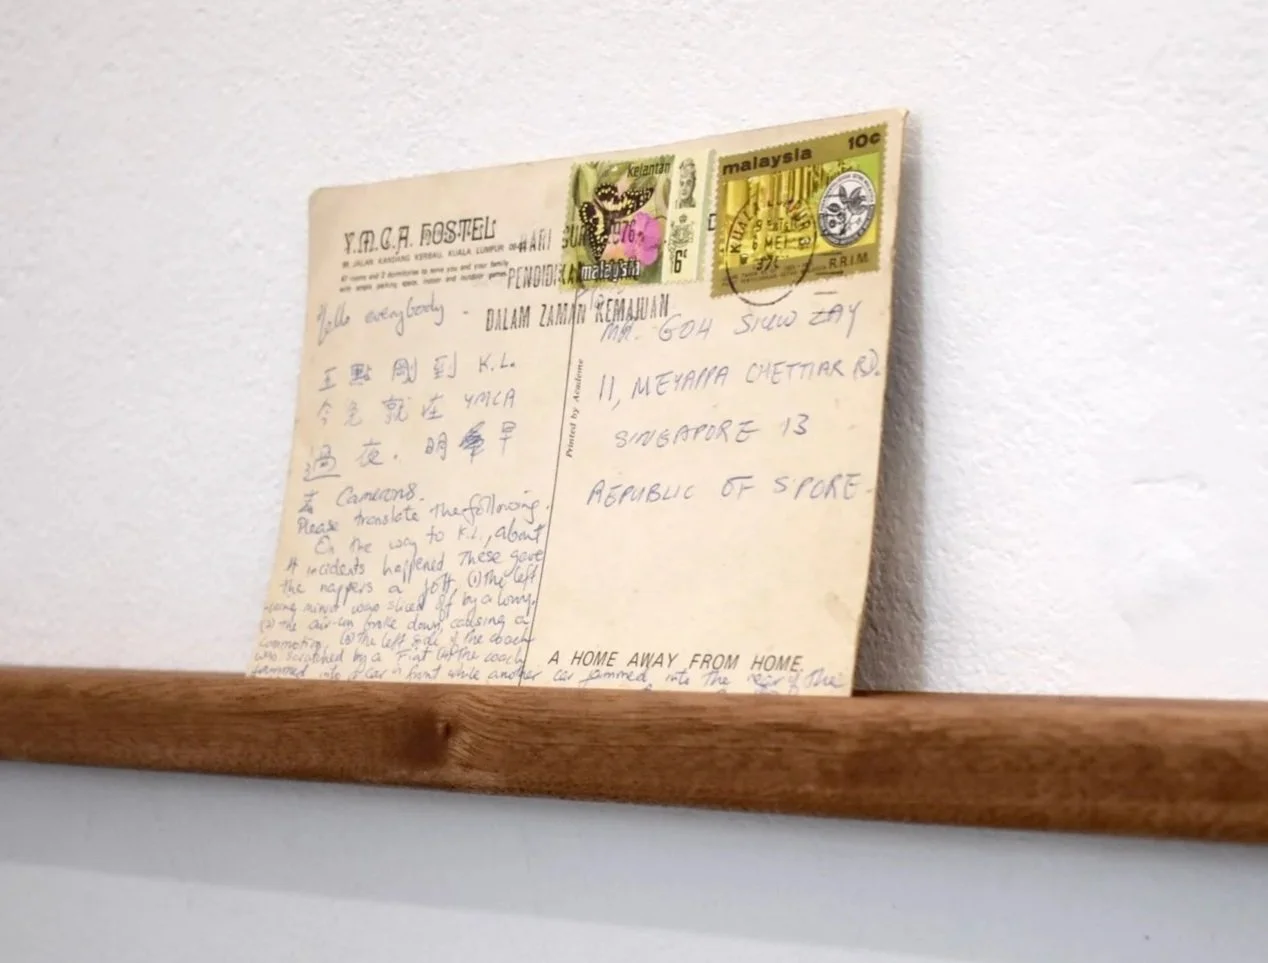 Y.M.C.A. HOSTEL
JALAN KANDANG KERBAU, KUALA LUMPUR
rooms and 2 dormitories to serve you and your family
with ample parking space, indoor and outdoor games
Hello everybody -
五點剛到 K.L.
今兔就在 YMCA
過夜. 明早
去 Camerons.
Please translate the following.
On the way to K.L., about
4 incidents happened These gave
the nappers a jolt (1) The left
wing mirror was sliced off by a lorry.
(2) The air-con broke down, causing a
commotion (3) The left side of the coach
was scratched by a Fiat (4) The coach
rammed into a car in front while another car jammed into the rear of the
kelantan
malaysia
6c
malaysia 10c
R.R.I.M.
KUALA LUMPUR
HARI GURU 1976
PENDIDIKAN
DALAM ZAMAN KEMAJUAN
Printed by Academe
MR. GOH SIEW ZAY
11, MEYAPPA CHETTIAR RD.
SINGAPORE 13
REPUBLIC OF S'PORE.
A HOME AWAY FROM HOME